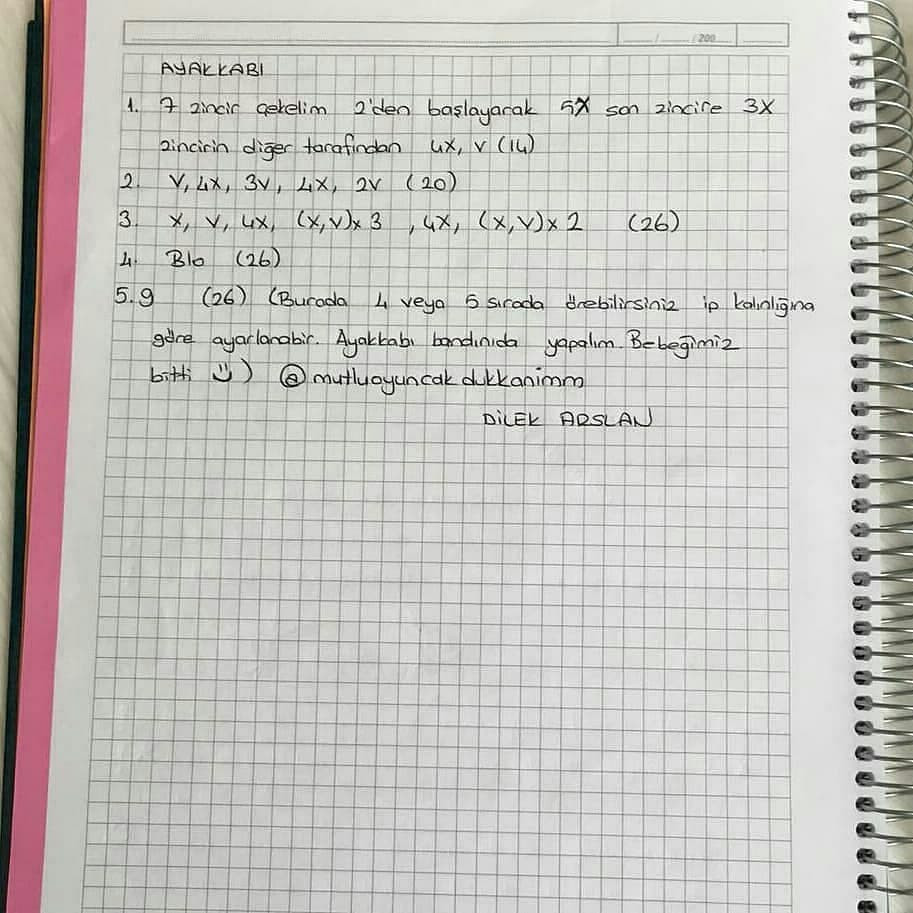 / /200
AYAKKABI
1. 7 zincir çekelim 2'den başlayarak 5X son zincire 3X
zincirin diğer tarafından 4x, v (14)
2. V, 4x, 3v, 4x, 2v (20)
3. x, v, 4x, (x,v)x3 , 4x, (x,v)x2 (26)
4. Blo (26)
5.9 (26) (Burada 4 veya 5 sırada örebilirsiniz ip kalınlığına
göre ayarlanabir. Ayakkabı bandınıda yapalım. Bebeğimiz
bitti ) @mutluoyuncakdukkanimm
DİLEK ARSLAN